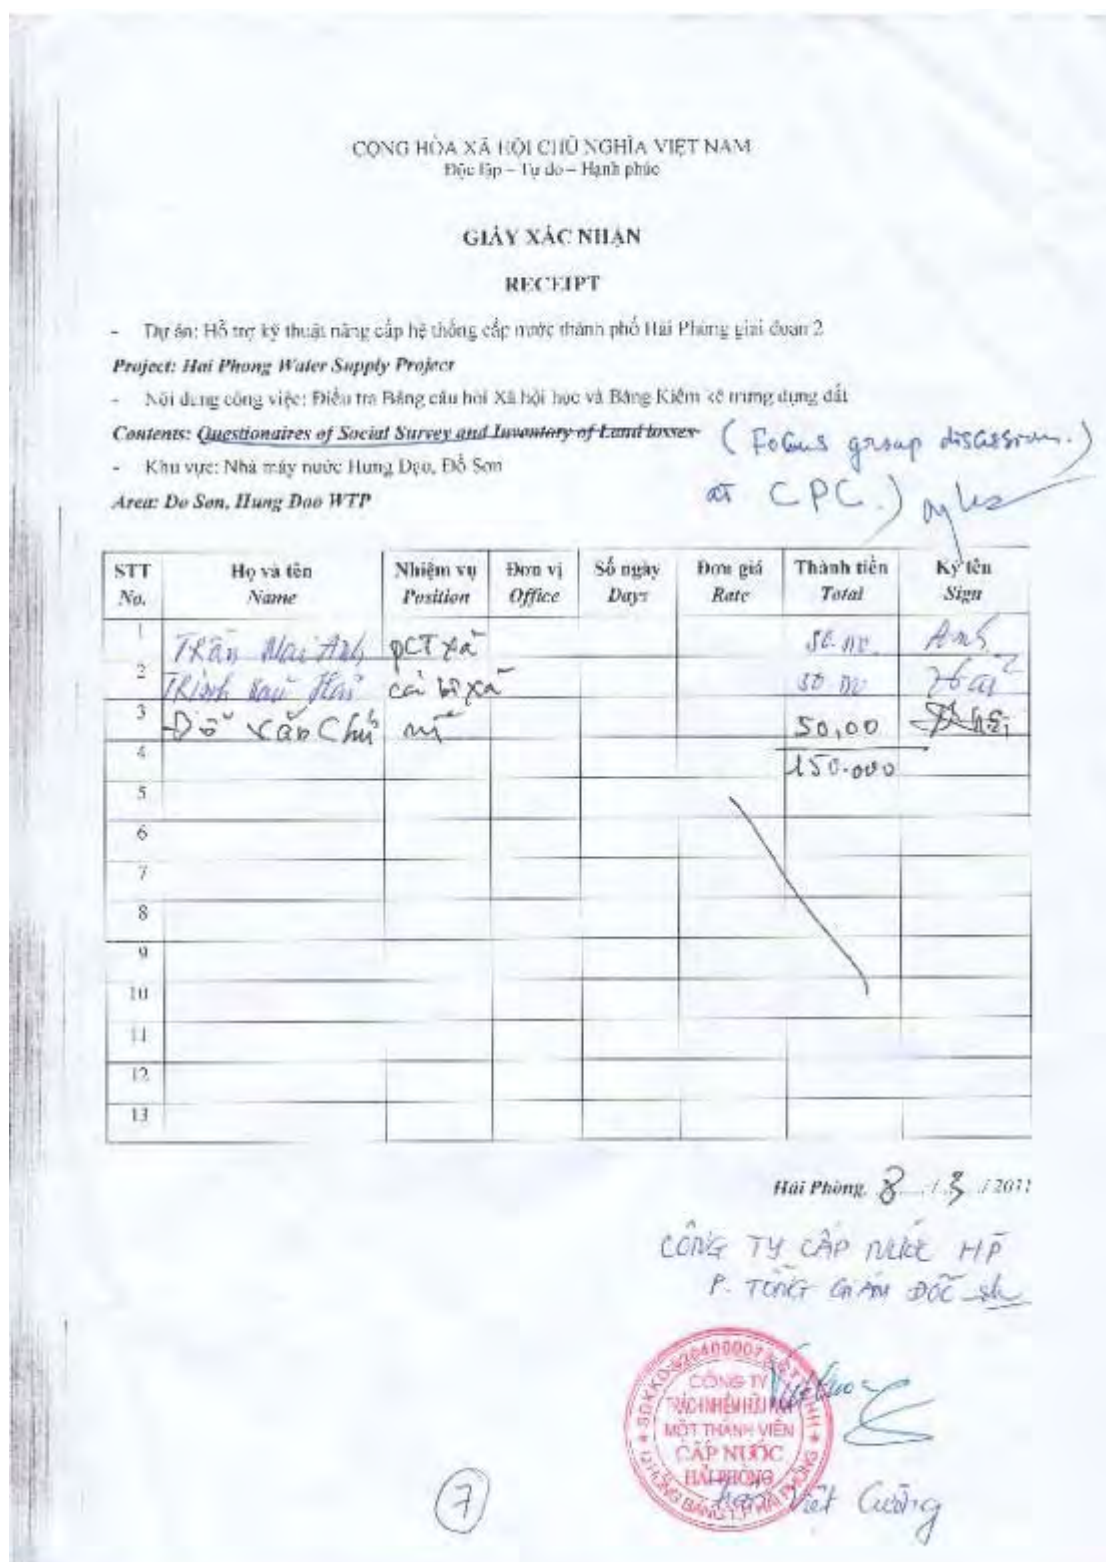 CỘNG HÒA XÃ HỘI CHỦ NGHĨA VIỆT NAM
Độc lập – Tự do – Hạnh phúc
GIẤY XÁC NHẬN
RECEIPT
- Dự án: Hỗ trợ kỹ thuật nâng cấp hệ thống cấp nước thành phố Hải Phòng giai đoạn 2
Project: Hai Phong Water Supply Project
- Nội dung công việc: Điều tra Bảng câu hỏi Xã hội học và Bảng Kiểm kê trưng dụng đất
Contents: Questionaires of Social Survey and Inventory of Land losses (Focus group discussion.)
- Khu vực: Nhà máy nước Hưng Đạo, Đồ Sơn
at CPC.)
Area: Do Son, Hung Dao WTP
STT Họ và tên Nhiệm vụ Đơn vị Số ngày Đơn giá Thành tiền Ký tên
No. Name Position Office Days Rate Total Sign
1 Trần Mai Anh PCT xã Anh
2 Hải
3 Đỗ Văn Chú 50,00
4 150.000
5
6
7
8
9
10
11
12
13
Hải Phòng, 8 / 3 / 2011
CÔNG TY CẤP NƯỚC HP
P. TỔNG GIÁM ĐỐC
CÔNG TY
TRÁCH NHIỆM HỮU HẠN
MỘT THÀNH VIÊN
CẤP NƯỚC
HẢI PHÒNG
Việt Cường
7